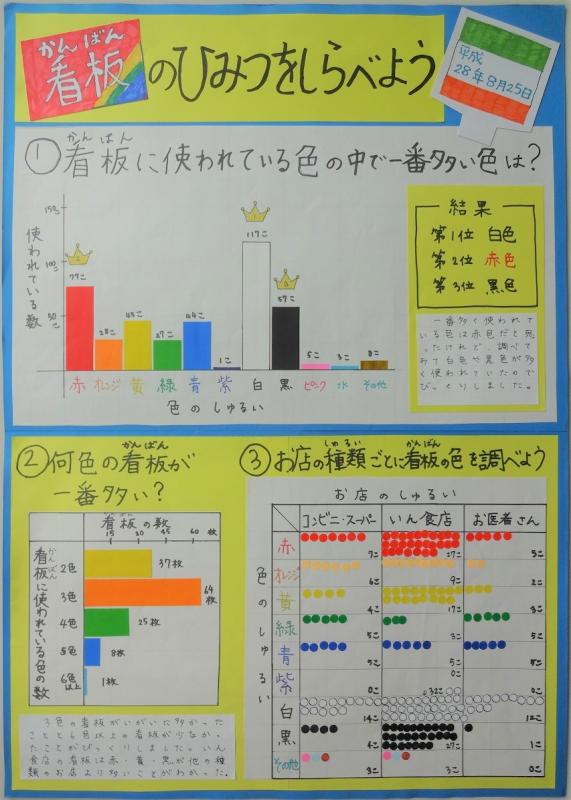 かんばん
看板のひみつをしらべよう
平成
28年8月25日
かんばん
①看板に使われている色の中で一番多い色は?
使われている数
150こ
100こ
50こ
77こ
28こ
45こ
27こ
44こ
1こ
117こ
59こ
5こ
3こ
赤 オレンジ 黄 緑 青 紫 白 黒 ピンク 水 その他
色のしゅるい
結果
第1位 白色
第2位 赤色
第3位 黒色
一番多く使われて
いる色は赤色だと思
ったけれど、調べて
みて白色や黒色が多
く使われていたので
びっくりしました。
かんばん
②何色の看板が
一番多い?
かんばん
看板の数
15 30 45 60 枚
かんばん
看板に使われている色の数
2色 37枚
3色 64枚
4色 25枚
5色 8枚
6色以上 1枚
3色の看板がいがいと多かった
ことと6色以上の看板が少なかっ
たことがびっくりしました。いん
食店の看板は赤・黄・黒が他の種
類のお店より多いことがわかった。
しゅるい かんばん
③お店の種類ごとに看板の色を調べよう
お店のしゅるい
コンビニ・スーパー いん食店 お医者さん
色のしゅるい
赤 7こ 27こ 5こ
オレンジ 6こ 9こ 2こ
黄 4こ 17こ 3こ
緑 5こ 3こ 5こ
青 5こ 5こ 5こ
紫 0こ 0こ 0こ
白 14こ 32こ 12こ
黒 4こ 27こ 1こ
その他 3こ 3こ 0こ